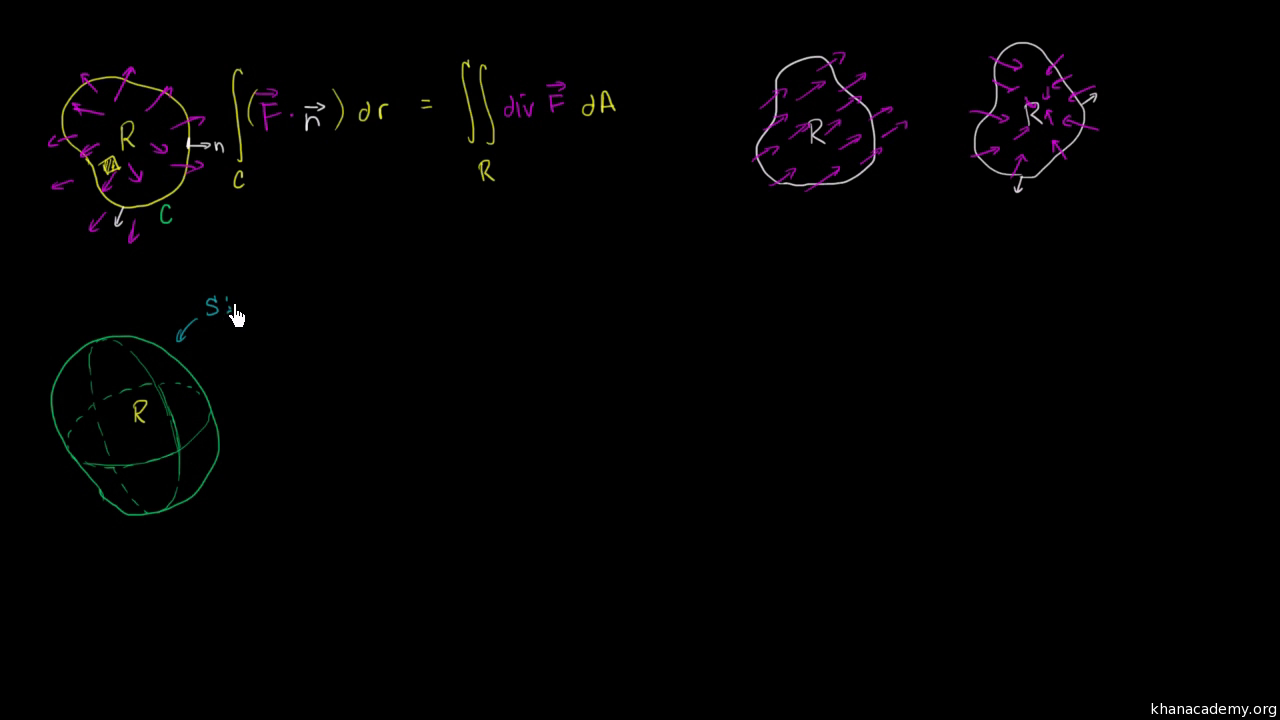 R
n
C
∫_C (F⃗ · n⃗) dr = ∬_R div F⃗ dA
R
R
S:
R
khanacademy.org